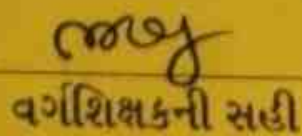 વર્ગશિક્ષકની સહી